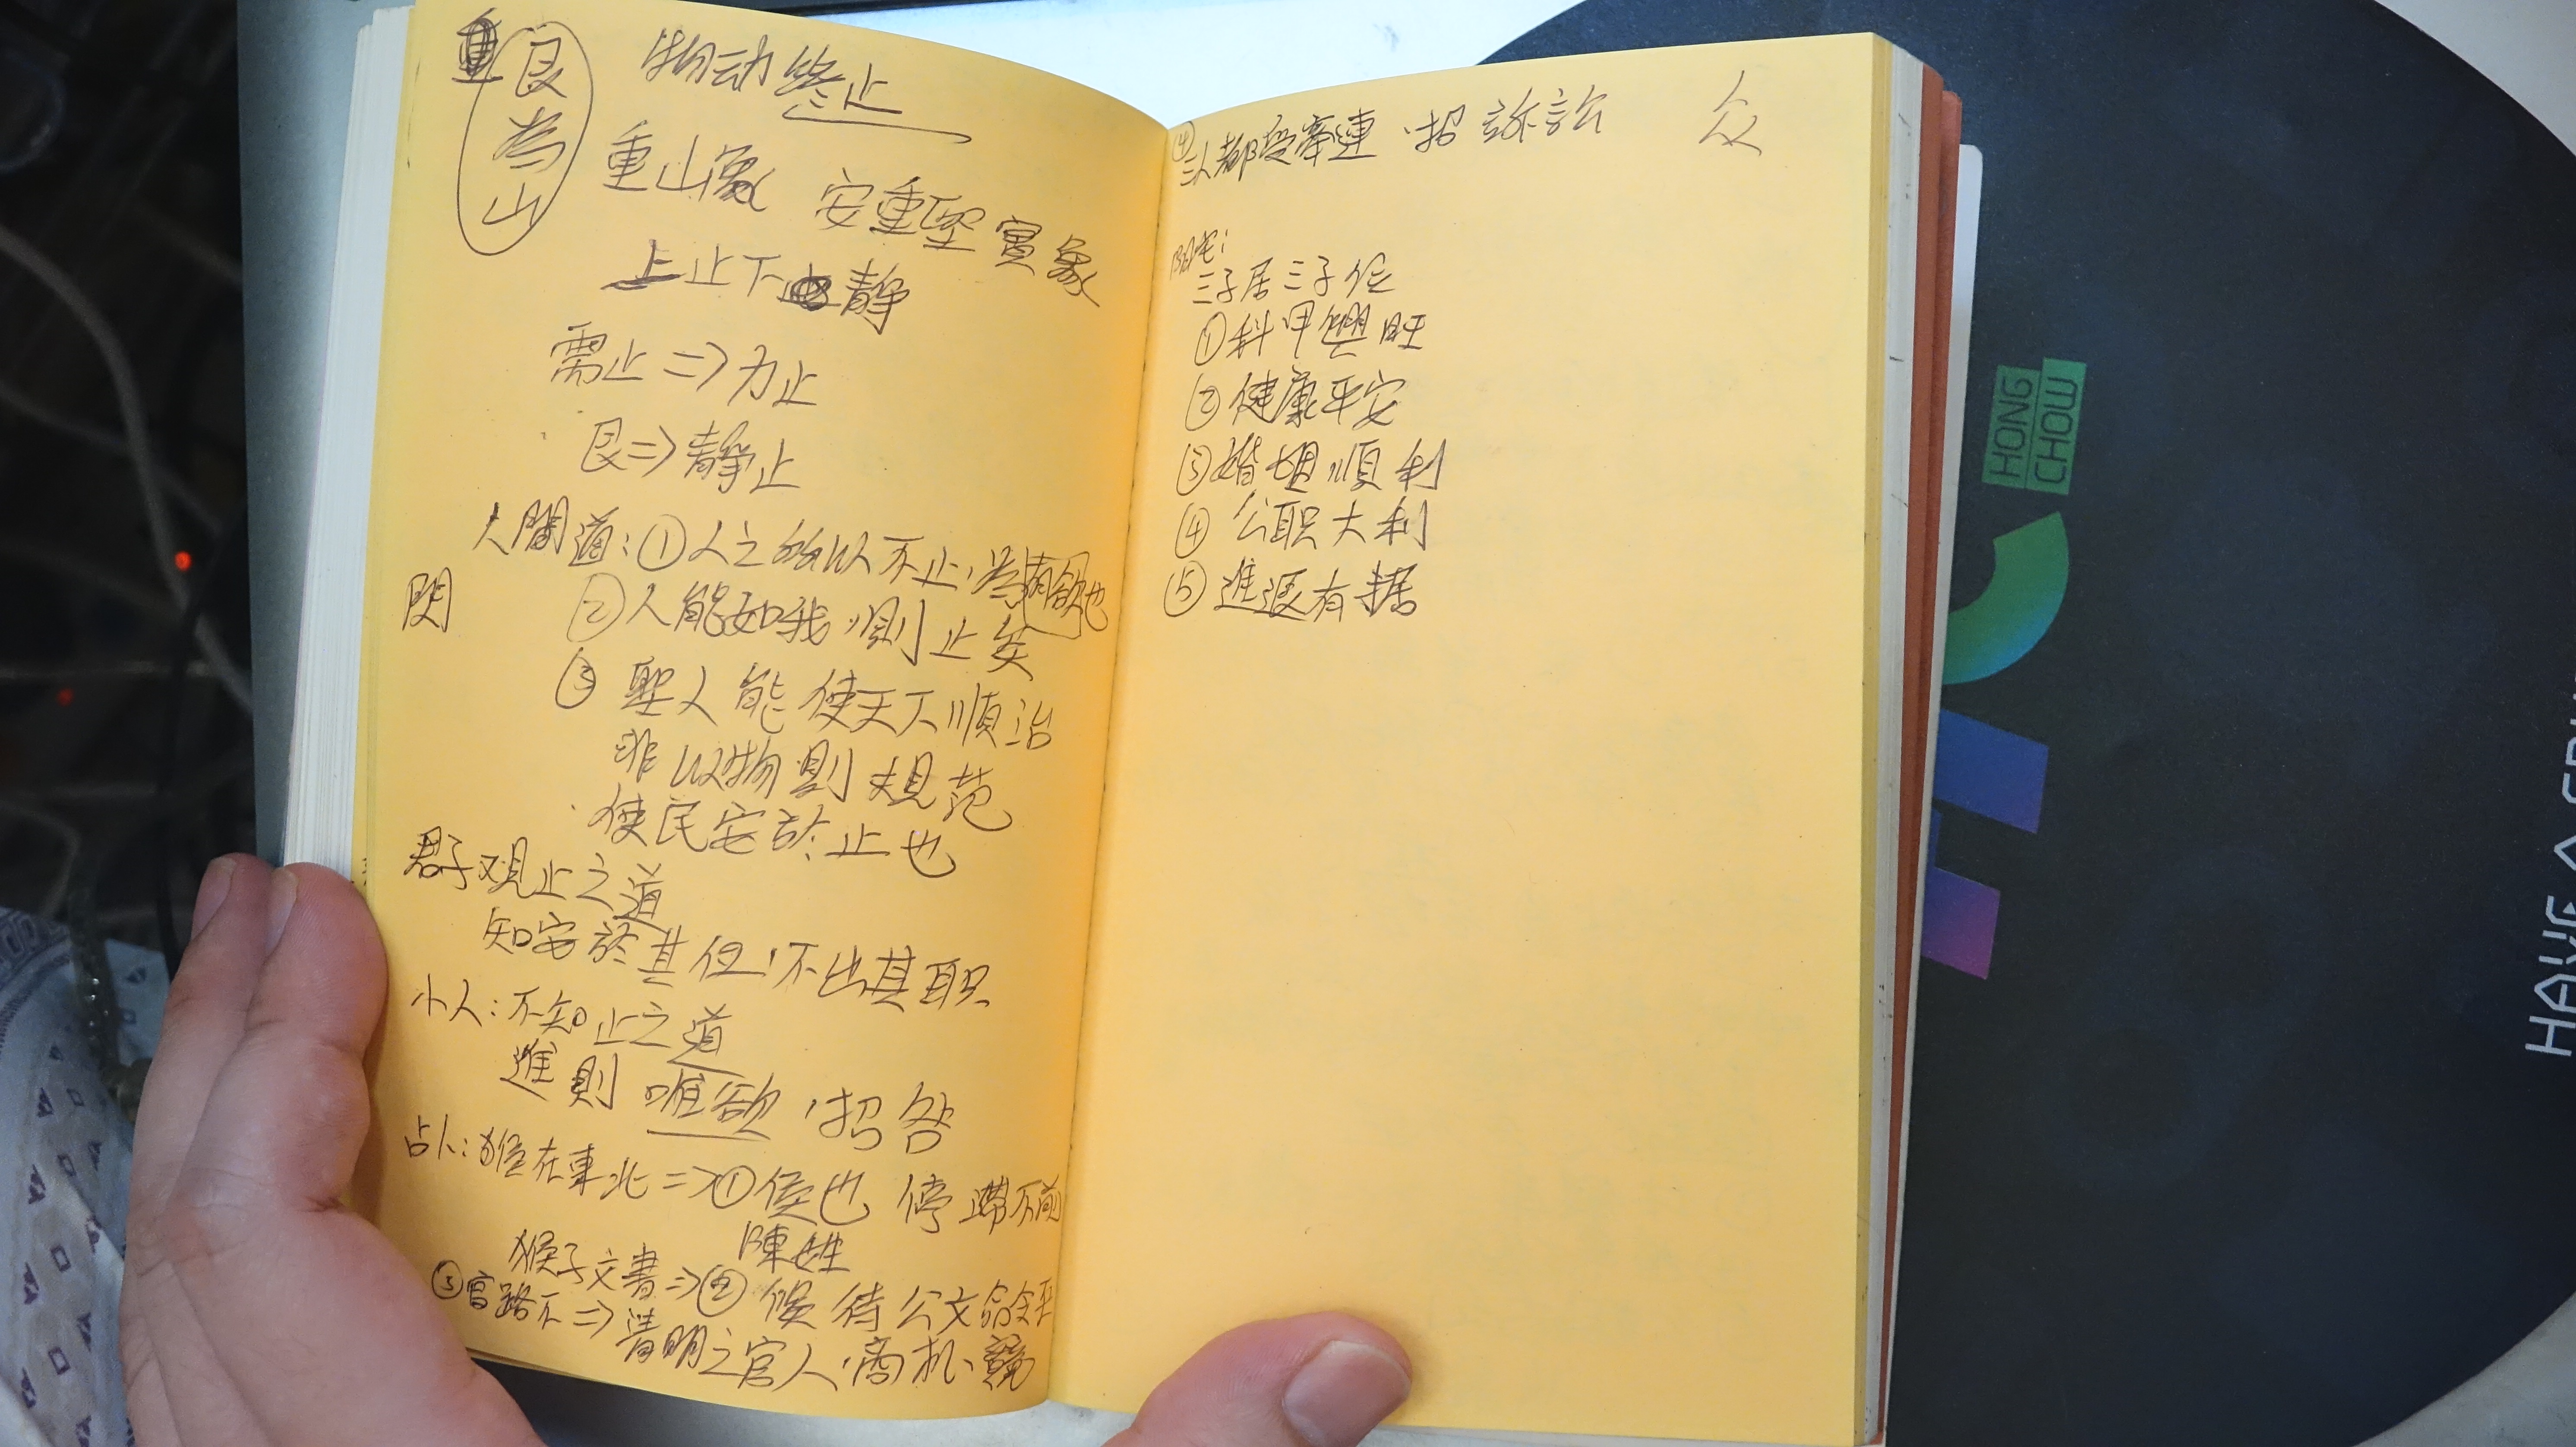 重
艮為山
物动终止
重山象 安重堅實象
上止下静
需止⇒力止
艮⇒靜止
人間道:①人之所以不止,為有欲也
②人能如我順則止矣
③聖人能使天下順治
非以物則規范
使民安於止也
君子观止之道
知安於其位,不出其职
小人:不知止之道
進則唯欲,招咎
占卜:猴在東北⇒①侯也 停滯不前
陳姓
猴子文書⇒②候待公文命令
③官路不⇒清明之官人,商机
④二人都受牽連,招訴訟
众
陽宅:
三子居三子位
①科甲興旺
②健康平安
③婚姻順利
④公职大利
⑤進退有据
HONG
CHOW